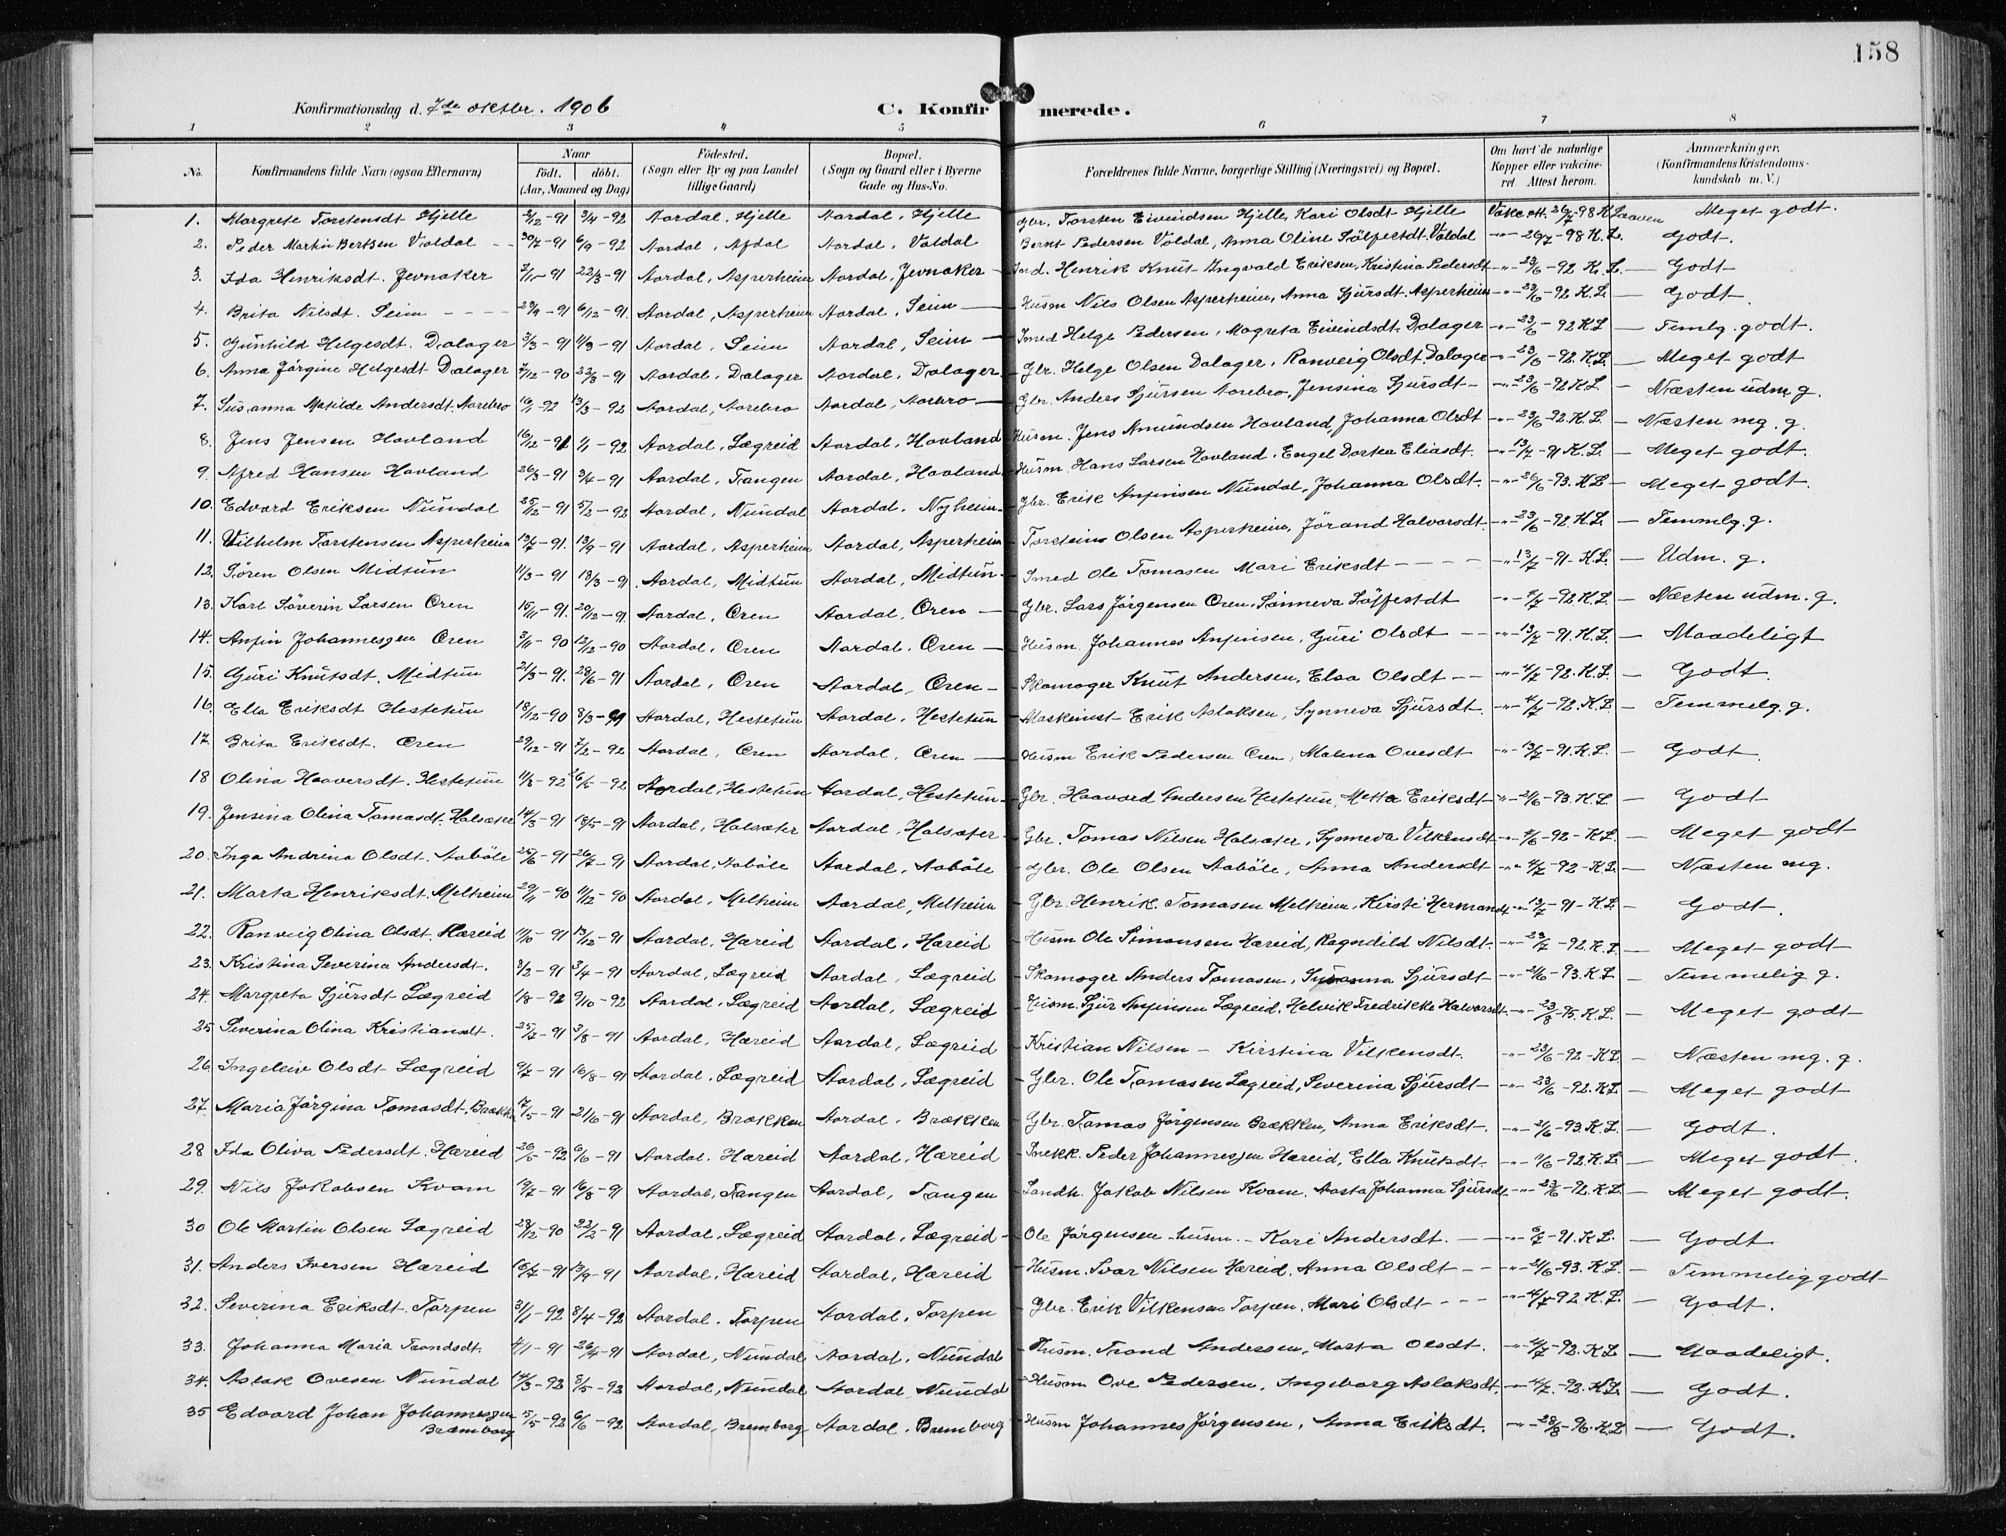 158
Konfirmationsdag d. 7de oktbr. 1906 C. Konfirmerede.
1 2 3 4 5 6 7 8
No. Konfirmandens fulde Navn (ogsaa Efternavn) Naar födt. döbt. (Aar, Maaned og Dag) Födested. (Sogn eller By og paa Landet tillige Gaard) Bopæl. (Sogn og Gaard eller i Byerne Gade og Hus-No. Forældrenes fulde Navne, borgerlige Stilling (Næringsvei) og Bopæl. Om havt de naturlige Kopper eller vakcineret Attest herom. Anmærkninger. (Konfirmandens Kristendomskundskab m. V.)
1. Margrete Torstensdt Hjelle 2/12-91 3/4-92 Aardal, Hjelle Aardal, Hjelle Gbr. Torsten Eivindsen Hjelle, Kari Olsdt Hjelle Vakc. att. 26/7-98 K. Laaven Meget godt.
2. Peder Martin Bertsen Voldal 30/7-91 6/9-92 Aardal, Afdal Aardal, Voldal Bernt Pedersen Voldal, Anna Oline Sölfestdt. Voldal -"- 26/7-98 K. L. Godt.
3. Ida Henriksdt. Jevnaker 7/1-91 22/3-91 Aardal, Asperheim Aardal, Jevnaker Ind. Henrik Knut Ingvald Eriksen, Kristina Pedersdt -"- 23/6-92 K. L. Godt
4. Brita Nilsdt. Seim 29/9-91 6/12-91. Aardal, Asperheim Aardal, Seim Husm Nils Olsen Asperheim, Anna Sjursdt. Asperheim -"- 23/6-92 K. L. Godt.
5. Gunhild Helgesdt. Dalager 3/3-91 11/3-91 Aardal, Seim Aardal, Seim Smed Helge Pedersen, Magreta Eivindsdt. Dalager -"- 23/6-92 K. L. Temlg. godt.
6. Anna Jörgine Helgesdt Dalager 7/12-90 22/3-91 Aardal, Dalager Aardal, Dalager Gbr. Helge Olsen Dalager, Ranveig Olsdt. Dalager -"- 23/6-92. K. L. Meget godt
7. Susanna Matilde Andersdt. Aarebro 16/1-92 13/3-92 Aardal, Aarebro Aardal, Aarebro Gbr. Anders Sjursen Aarebro, Jensina Sjursdt -"- 23/6-92 K. L. Næsten udm. g.
8. Jens Jensen Hovland 16/12-91 1/1-92 Aardal, Lægreid Aardal, Hovland Husm. Jens Amundsen Hovland, Johanna Olsdt -"- 23/6-92. K. L. Næsten mg. g.
9. Alfred Hansen Hovland 26/3-91 3/4-91 Aardal, Tangen Aardal, Hovland Husm. Hans Larsen Hovland. Engel Dortea Eliasdt. -"- 13/7-91 K. L. Meget godt.
10. Edvard Eriksen Nundal 25/12-91 5/2-92 Aardal, Nundal Aardal, Nyheim Gbr. Erik Anfinsen Nundal, Johanna Olsdt. -"- 26/6-93. K. L. Meget godt.
11. Vilhelm Torstensen Asperheim 13/7-91. 13/9-91 Aardal, Asperheim Aardal, Asperheim Torstein Olsen Asperheim, Jörand Halvorsdt -"- 23/6-92 K. L. Temmlg. g.
12. Sören Olsen Midtun 11/3-91 13/3-91 Aardal, Midtun Aardal, Midtun Smed Ole Tomasen Mari Eriksdt -"- 13/7-91. K. L. Udm. g.
13. Karl Söverin Larsen Oren 15/11-91. 20/12-91. Aardal, Oren Aardal, Oren Gbr. Lars Jörgensen Oren, Sönneva Sölfestdt -"- 4/7-92 K. L. Næsten udm. g.
14. Anfin Johannesen Oren 3/11-90 12/12-90 Aardal, Oren Aardal, Oren Husm. Johannes Anfinsen, Guri Olsdt -"- 13/7-91. K. L. Maadeligt
15. Guri Knutsdt. Midtun 21/3-91. 28/6-91 Aardal, Oren Aardal, Oren Skomager Knut Andersen, Elsa Olsdt -"- 4/7-92. K. L. Godt.
16. Ella Eriksdt Hestetun 18/12-90 8/3-91 Aardal, Hestetun Aardal, Hestetun Maskinist Erik Aslaksen, Synneva Sjursdt. -"- 4/7-92. K. L. Temmelg. g.
17. Brita Eriksdt. Oren 29/12-91 7/2-92 Aardal, Oren Aardal, Oren Husm Erik Pedersen Oren, Malena Ovesdt -"- 13/7-91. K. L. Godt.
18 Olina Haaversdt. Hestetun 11/3-92 Aardal, Hestetun Aardal, Hestetun Gbr. Haavard Andersen Hestetun, Metta Eriksdt -"- 21/6-93. K. L. Godt
19. Jensina Olina Tomasdt. Holsæter 14/3-91 18/5-91 Aardal, Holsæter Aardal, Holsæter Gbr. Tomas Nilsen Holsæter, Synneva Vilkensdt -92 - K. L. Meget godt
20. Inga Andrina Olsdt. Aaböle 25/6-91 26/7-91 Aardal, Aaböle Aardal, Aaböle Gbr. Ole Olsen Aaböle, Anna Andersdt -"- 4/7-92 - K. L. Næsten mg.
21. Marta Henriksdt. Melheim 29/11-90 11/12-90 Aardal, Melheim Aardal, Melheim Gbr. Henrik Tomasen Melheim, Kirsti Hermansdt -"- 13/7-91 - K. L. Godt.
22. Ranveig Olina Olsdt. Hæreid 11/10-91 13/12-91 Aardal, Hæreid Aardal, Hæreid Husm Ole Simonsen Hæreid, Ragndild Nilsdt. -"- 23/7-92. K. L. Meget godt
23. Kristina Severina Andersdt. 3/2-91 3/4-91 Aardal, Lægreid Aardal, Lægreid Skomager Anders Tomasen, Susanna Sjursdt -"- 21/6-93. K. L. Temmelig g.
24. Margreta Sjursdt Lægreid 1/8-92 9/10-92 Aardal, Lægreid Aardal, Lægreid Husm. Sjur Anfinsen Lægreid, Helvik Fredrikke Halvorsdt. -"- 23/8-95. K. L. Meget godt
25 Severina Olina Kristiansdt. 25/7-91 3/8-91 Aardal, Hæreid Aardal, Lægreid Kristian Nilsen - Kirstina Vilkensdt. -"- 23/6-92 - K. L. Næsten mg. g.
26. Ingeleiv Olsdt Lægreid 9/7-91 16/8-91 Aardal, Lægreid Aardal, Lægreid Gbr. Ole Tomasen Lægreid, Severina Sjursdt -"- 23/6-92. K. L. Meget godt
27. Maria Jörgina Tomasdt. Brække 17/5-91 21/6-91 Aardal, Brækken Aardal, Brækken Gbr. Tomas Jörgensen Brækken, Anna Eriksdt. -"- 21/6-93. K. L. Godt.
28 Ida Oliva Pedersdt. Hæreid 20/5-92 6/6-91 Aardal, Hæreid Aardal, Hæreid Snekk. Peder Johannesen Hæreid, Ella Knutsdt. -92. K. L. Meget godt.
29. Nils Jakobsen Kvam 19/7-91 16/8-91 Aardal, Tangen Aardal, Tangen Landh. Jakob Nilsen Kvam. Aasta Johanna Sjursdt -"- 23/6-92. K. L. Meget godt.
30 Ole Martin Olsen Lægreid 28/12-90 22/2-91 Aardal, Lægreid Aardal, Lægreid Ole Jörgensen - husm. - Kari Andersdt. -91. K. L. Godt
31. Anders Iversen Hæreid 15/7-91 13/9-91 Aardal, Hæreid Aardal, Hæreid Husm. Ivar Nilsen Hæreid. Anna Olsdt -"- 21/6-93. K. L. Temmelig godt
32. Severina Eriksdt. Torpen 31/1-92 8/4-92 Aardal, Torpen Aardal, Torpen Gbr. Erik Vilkensen Torpen, Mari Olsdt -"- 4/7-92 K. L. Godt.
33. Johanna Maria Trondsdt. 4/1-91 26/4-91 Aardal, Nundal Aardal, Nundal Husm. Trond Anderssen, Marta Olsdt. -"- 4/7-92. K. L. Maadeligt.
34. Aslak Ovesen Nundal 14/3-92 8/5-92 Aardal, Nundal Aardal, Nundal Husm Ove Pedersen, Ingeborg Aslaksdt. -"- 4/7-92. K. L. Godt.
35 Edvard Johan Johannesen Bremborg 15/5-92 6/6-92 Aardal, Bremborg Aardal, Bremborg Husm Johannes Jörgensen, Anna Eriksdt. -"- 28/8-96. K. L. Godt.